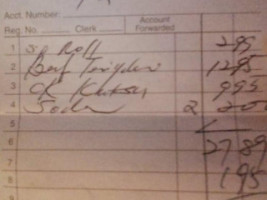 Acct. Number:
Reg. No. Clerk Account Forwarded
1 Roll 295
2 Beef Teriyaki 1295
3 Katsu 995
4 Soda 2 200
5
6 2789
7 195
8